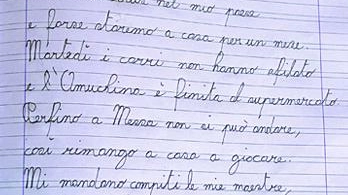 nel mio paese
e forse staremo a casa per un mese.
Martedì i carri non hanno sfilato
e l'Amuchina è finita al supermercato.
Perfino a Messa non si può andare,
così rimango a casa a giocare.
Mi mandano compiti le mie maestre,